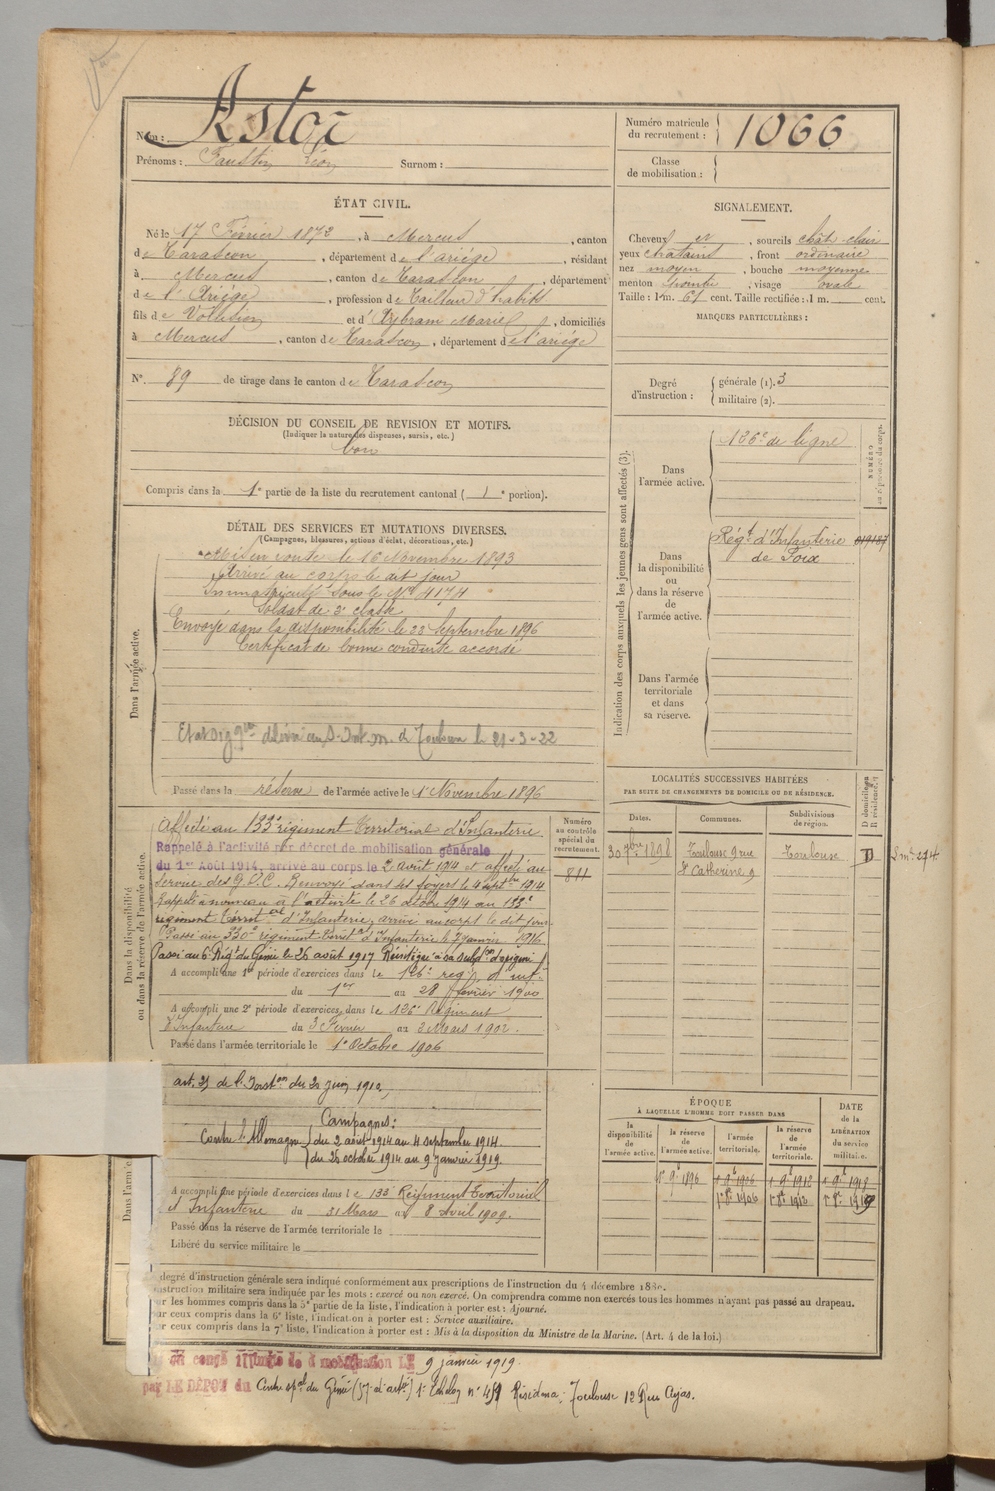 Nom : Astor
Prénoms : Faustin Léon Surnom :
Numéro matricule du recrutement : 1066
Classe de mobilisation :
ÉTAT CIVIL.
Né le 17 Février 1872, à Mercus, canton
de Tarascon, département de l'ariége, résidant
à Mercus, canton de Tarascon, département
de l'Ariége, profession de Tailleur d'habits
fils de Volusien et d' Marie, domiciliés
à Mercus, canton de Tarascon, département de l'ariége
N° 89 de tirage dans le canton de Tarascon
SIGNALEMENT.
Cheveux et, sourcils chât-clair
yeux chatains, front ordinaire
nez moyen, bouche moyenne
menton, visage ovale
Taille : 1 m. 61 cent. Taille rectifiée : 1 m. cent.
MARQUES PARTICULIÈRES :
Degré d'instruction : générale (1). 3
militaire (2).
DÉCISION DU CONSEIL DE REVISION ET MOTIFS.
(Indiquer la nature des dispenses, sursis, etc.)
bon
Compris dans la 1e partie de la liste du recrutement cantonal ( 1e portion).
DÉTAIL DES SERVICES ET MUTATIONS DIVERSES.
(Campagnes, blessures, actions d'éclat, décorations, etc.)
Dans l'armée active.
Mis en route le 16 Novembre 1893
Arrivé au corps le dit jour
Immatriculé sous le N° 4174
Soldat de 2e classe
Envoyé dans la disponibilité le 22 Septembre 1896
Certificat de bonne conduite accordé
Toulouse le 21-3-22
Passé dans la réserve de l'armée active le 1er Novembre 1896
Indication des corps auxquels les jeunes gens sont affectés (3).
NUMÉRO
Dans l'armée active.
126e de ligne
Dans la disponibilité ou dans la réserve de l'armée active.
Régt d'Infanterie
de Foix
Dans l'armée territoriale et dans sa réserve.
LOCALITÉS SUCCESSIVES HABITÉES
PAR SUITE DE CHANGEMENTS DE DOMICILE OU DE RÉSIDENCE.
Dates. Communes. Subdivisions de région. D domicile ou R résidence.
30 7bre 1898 Toulouse 9 rue Toulouse D
Ste Catherine 9
Dans la disponibilité ou dans la réserve de l'armée active.
Numéro au contrôle spécial du recrutement.
811
Affecté au 133e régiment Territorial d'Infanterie.
Rappelé à l'activité par décret de mobilisation générale
du 1er Août 1914, arrivé au corps le 2 août 1914 et affecté au
service des G.V.C. Renvoyé dans ses foyers le 4 septbre 1914
Rappelé à nouveau à l'activité le 26 octobre 1914 au 133e
régiment Territal d'Infanterie, arrivé au corps le dit jour
Passé au 330e régiment Territal d'Infanterie le 7 janvier 1916
Passé au 6e Rég. du Génie le 26 août 1917
A accompli une 1re période d'exercices dans le 126e reg. d'inf.
du 1er au 28 février 1900
A accompli une 2e période d'exercices, dans le 126e Régiment
d'Infanterie du 3 Février au 2 Mars 1902.
Passé dans l'armée territoriale le 1er Octobre 1906
Campagnes :
Contre l'Allemagne du 2 août 1914 au 4 septembre 1914
du 26 octobre 1914 au 9 janvier 1919.
A accompli une période d'exercices dans le 133e Régiment Territorial
d'Infanterie du 31 Mars au 8 Avril 1909.
Passé dans la réserve de l'armée territoriale le
Libéré du service militaire le
ÉPOQUE
À LAQUELLE L'HOMME DOIT PASSER DANS
la disponibilité de l'armée active. la réserve de l'armée active. l'armée territoriale. la réserve de l'armée territoriale.
DATE de la LIBÉRATION du service militaire.
1er 9e 1896 1er 9e 1906 1er 9e 1912 1er 9e 1918
1er 8e 1906 1er 8e 1912 1er 8e 1919
degré d'instruction générale sera indiqué conformément aux prescriptions de l'instruction du 4 décembre 1889.
instruction militaire sera indiquée par les mots : exercé ou non exercé. On comprendra comme non exercés tous les hommes n'ayant pas passé au drapeau.
les hommes compris dans la 5e partie de la liste, l'indication à porter est : Ajourné.
ceux compris dans la 6e liste, l'indication à porter est : Service auxiliaire.
ceux compris dans la 7e liste, l'indication à porter est : Mis à la disposition du Ministre de la Marine. (Art. 4 de la loi.)
congé illimité de démobilisation LE 9 janvier 1919.
par LE DÉPOT du Centre spal du Génie 1er Echelon n° 459 Résidence : Toulouse 12 Rue Cujas.